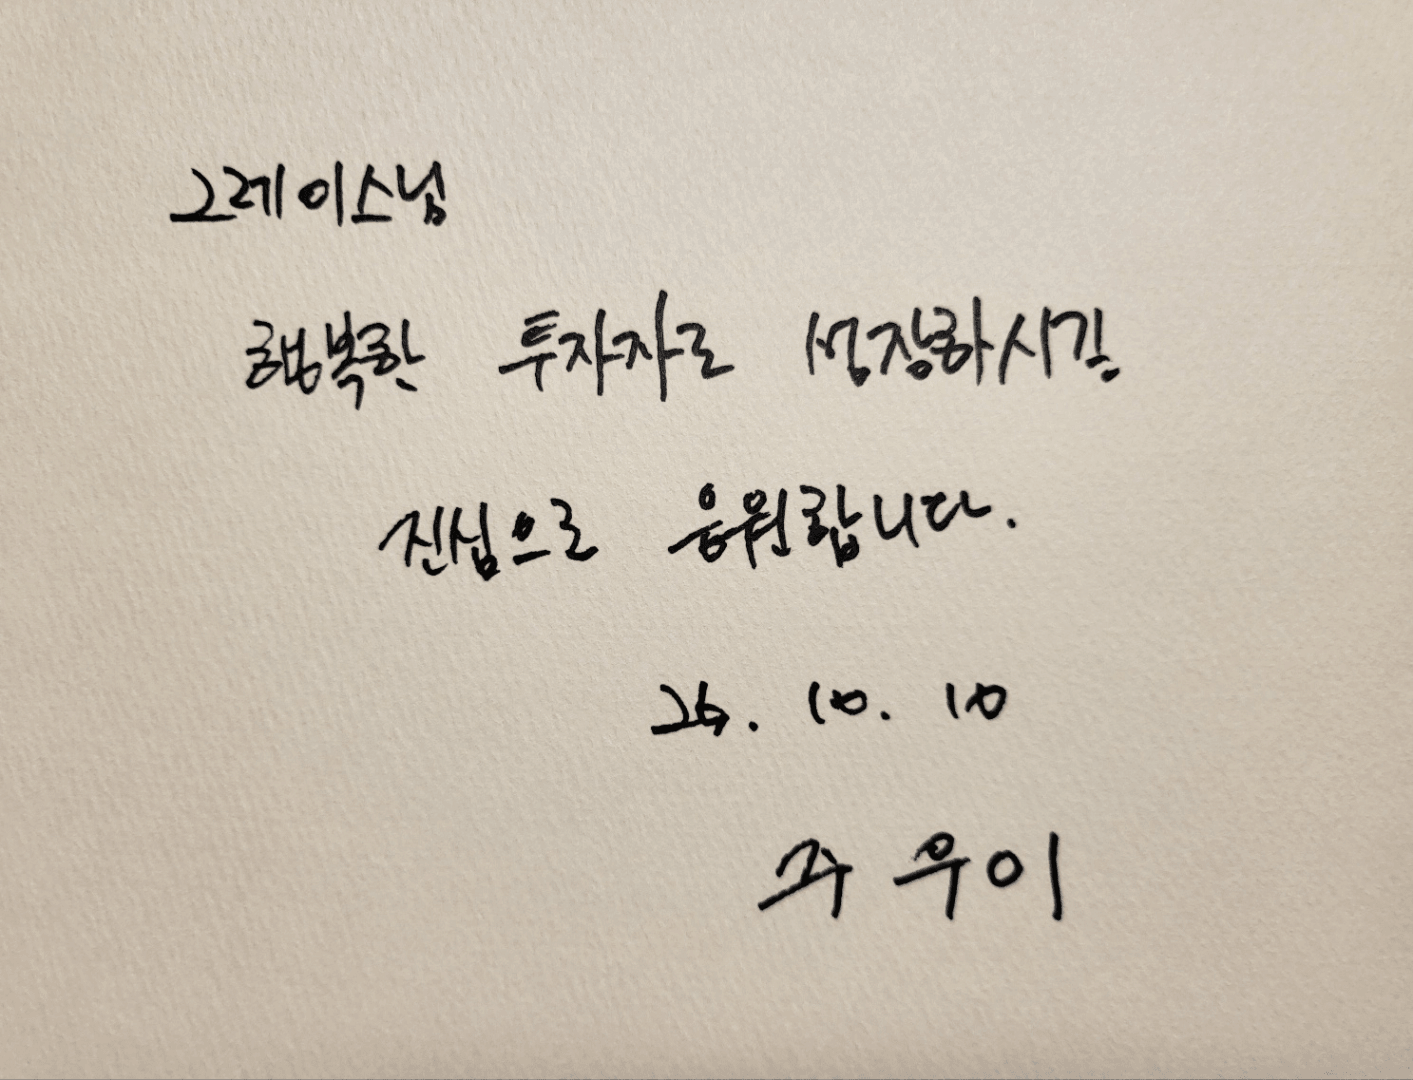 그레이스님
행복한 투자자로 성장하시길
진심으로 응원합니다.
26. 10. 10
주우이